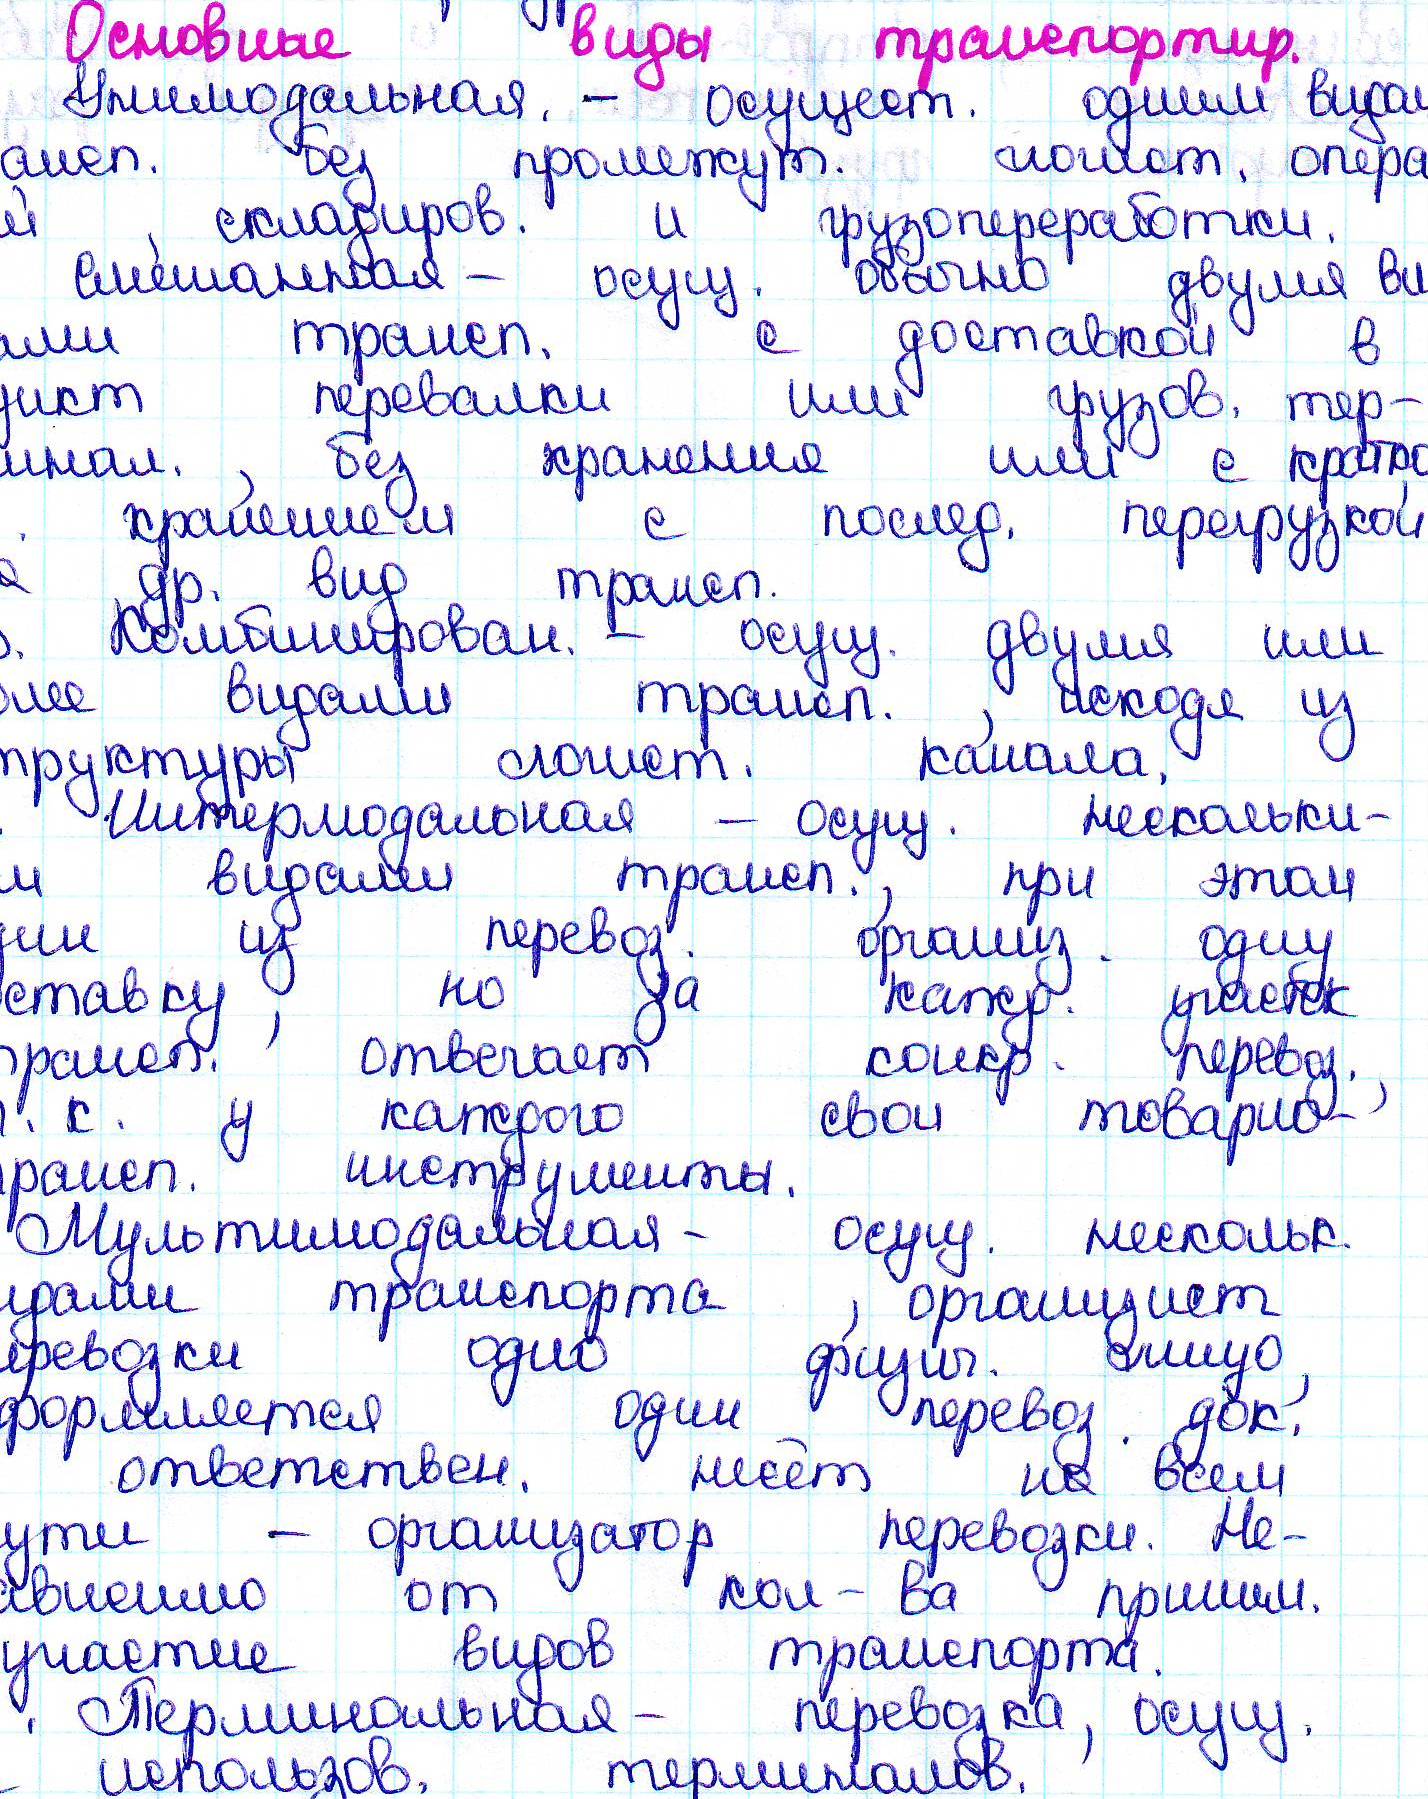 Основные виды транспортир.
Унимодальная. – осущест. одним видом
ансп. без промежут. логист. опера
й, складиров. и грузопереработки.
Смешанная – осущ. обычно двумя ви
ами трансп. с доставкой в
ункт перевалки или грузов. тер-
инал., без хранения или с кратко
. хранением с послед. перегрузкой
а др. вид трансп.
3. Комбинирован. – осущ. двумя или
олее видами трансп., исходя из
труктуры логист. канала.
. Интермодальная – осущ. нескольки-
ми видами трансп., при этом
дин из перевоз. организ. одну
оставку, но за кажд. участок
трансп. отвечает конкр. перевоз.,
т.к. у каждого свои товарно-
трансп. инструменты.
Мультимодальная – осущ. нескольк.
идами транспорта, организует
еревозки одно физич. лицо,
формляется один перевоз. док.
ответствен. несёт на всем
ути – организатор перевозки. Не-
ависимо от кол-ва приним.
участие видов транспорта.
. Терминальная – перевозка, осущ.
использов. терминалов.